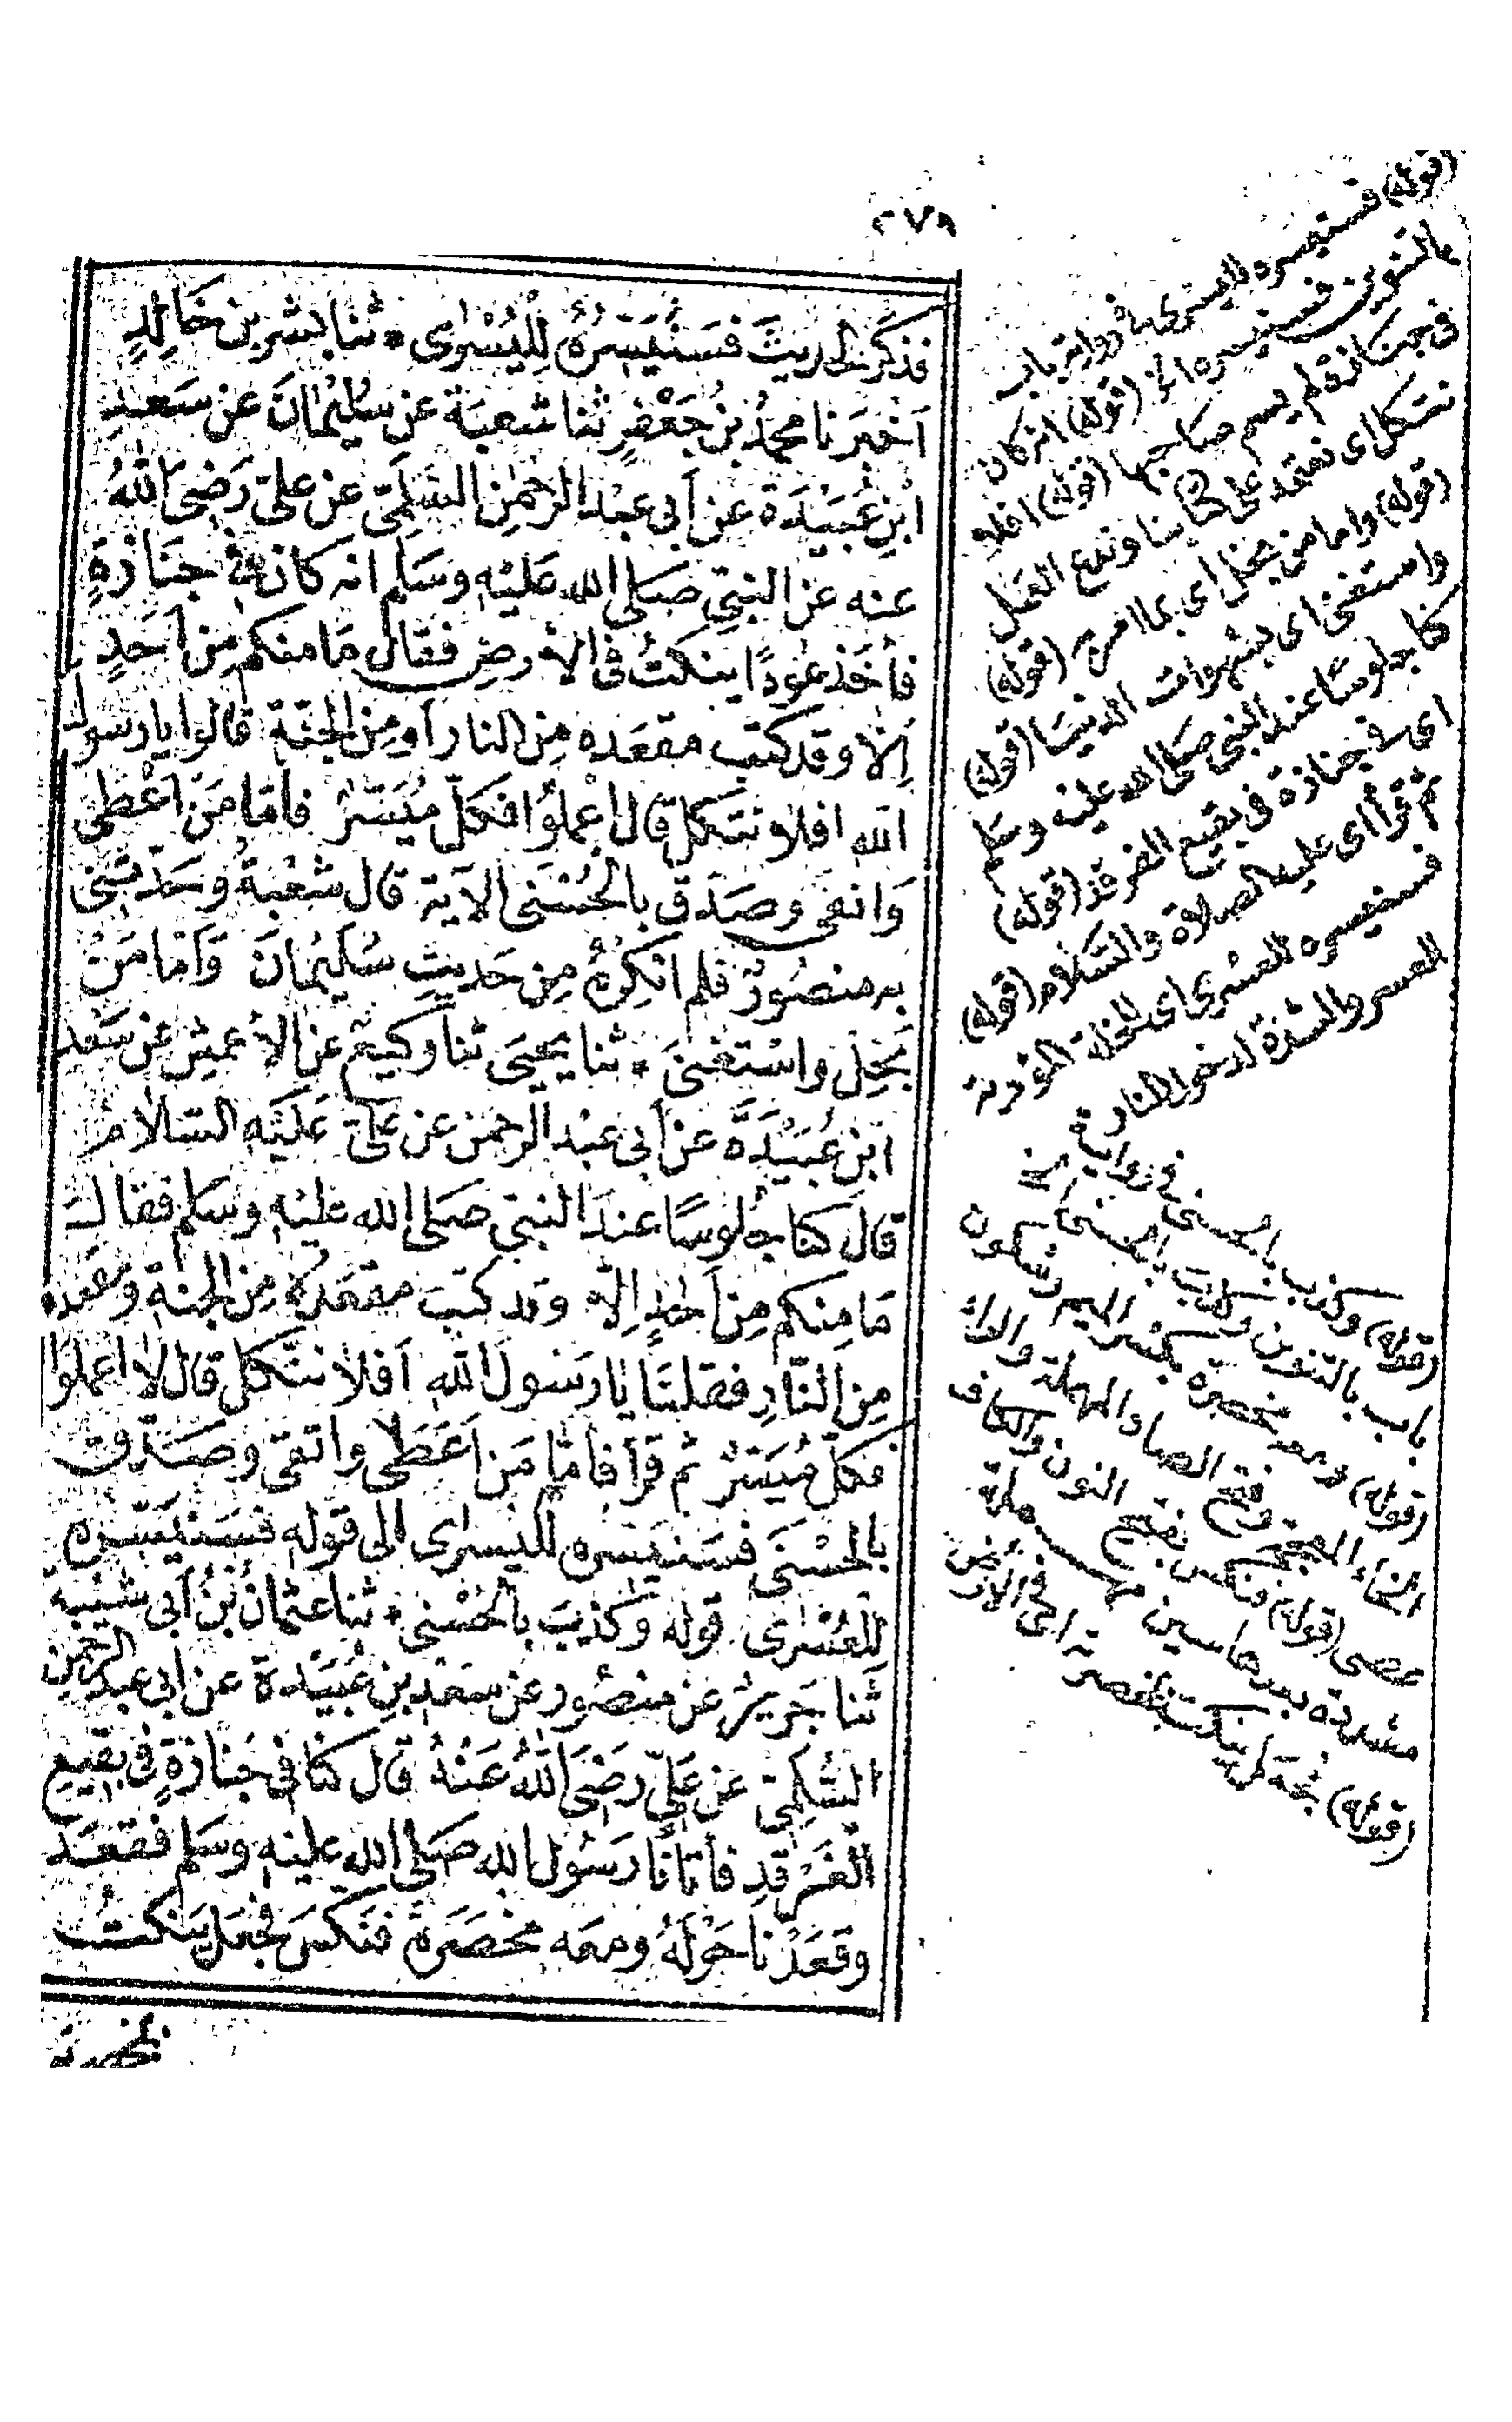 ٢٧٩
فذكر الحديث فَسَنُيَسِّرُهُ لِلْيُسْرٰى * ثنا بشر بن خَالِدٍ
اَخبَرَنا محمدُ بنُ جَعْفَرٍ ثنا شعبَة عن سُلَيْمانَ عَن سَعدِ
ابْنِ عُبَيْدَة عن اَبى عبْدِ الرحمٰنِ السُلَمِىّ عن علىّ رَضِىَ اللهُ
عنه عن النبىّ صَلى الله عَليْه وسَلم انه كانَ فى جنَازةٍ
فأخَذ عُودًا ينكتُ فى الاَرضِ فقال مَا منكم مِن اَحَدٍ
اِلّا وقد كتب مقعَده مِن النار اَو مِن الجنّة قالوا يا رسولَ
الله افلا نتّكل قال اعْملُوا فكلّ مُيَسَّرٌ فأمّا مَن اَعْطى
وَاتقى وصَدّق بالحُسْنى الآية قال شعْبَةُ وحَدّثنى
به منصُورٌ فلم انكِرْهُ مِن حَديثِ سُلَيمانَ وَامّا مَنْ
بَخِلَ واسْتغْنىَ * ثنا يَحيىَ ثنا وكيعٌ عن الأعمشِ عَن سَعْدِ
ابْن عُبَيْدَةَ عن اَبى عبْد الرحمٰن عن علىّ عَليَه السّلامُ
قالَ كنا جُلوسًا عندَ النبىّ صَلى الله عليْه وسَلم فقالَ
مَا مِنكم مِن اَحدٍ اِلّا وقد كتبَ مقعَدُهُ مِن الجنة ومَقعَدهُ
مِن النّارِ فقلنَا يا رَسولَ الله اَفلا نتّكل قال لا اعملوُا
فكلّ مُيَسَّرٌ ثم قرَأ فأمّا مَن اَعطَى واتقى وصَدّق
بالحُسْنَى فسَنيَسّره لليسرى الى قوله فسَنيَسّره
لِلعُسْرٰى قوله وَكذّبَ بالحُسْنى * ثنا عثمانُ بْنُ اَبى شيْبَة
ثنا جَريرٌ عَن منصُورٍ عن سَعْد بنِ عُبَيْدة عن اَبى عبد الرحمٰن
السُّلمِىّ عَن عَلىّ رَضَىَ اللهُ عَنْهُ قال كنّا فى جَنازةٍ فى بَقيعِ
الغَرْقدِ فأتانا رَسُول الله صَلى الله عليْه وسَلم فقعَدَ
وقعَدْنا حَوْلهُ ومعَه مخصَرَةٌ فنَكّسَ فجعَل يَنكتُ
بمخصرته
(قوله) فسنيسره لليسرى فى رواية باب
بالتنوين فسنيسره الخ (قوله) انه كان
فى جنازة لم يسم صاحبها (قوله) افلا
نتكل اى نعتمد على كتابنا وندع العمل
(قوله) واما من بخل اى بما امر به (قوله)
واستغنى اى بشهوات الدنيا (قوله)
كنا جلوسًا عند النبى صلى الله عليه وسلم
اى فى جنازة فى بقيع الغرقد (قوله)
ثم قرأ اى عليه الصلاة والسلام (قوله)
فسنيسره للعسرى اى للخلة المؤدية
للعسر والشدة لدخول النار
(قوله) وكذب بالحسنى فى رواية
باب بالتنوين وكذب بالحسنى الخ
(قوله) ومعه مخصرة بكسر الميم وسكون
الخاء المعجمة وفتح الصاد المهملة والراء
عصى (قوله) فنكس بفتح النون والكاف
مشددة بعدها سين مهملة
(قوله) فجعل ينكت بمخصرته اى فى الارض